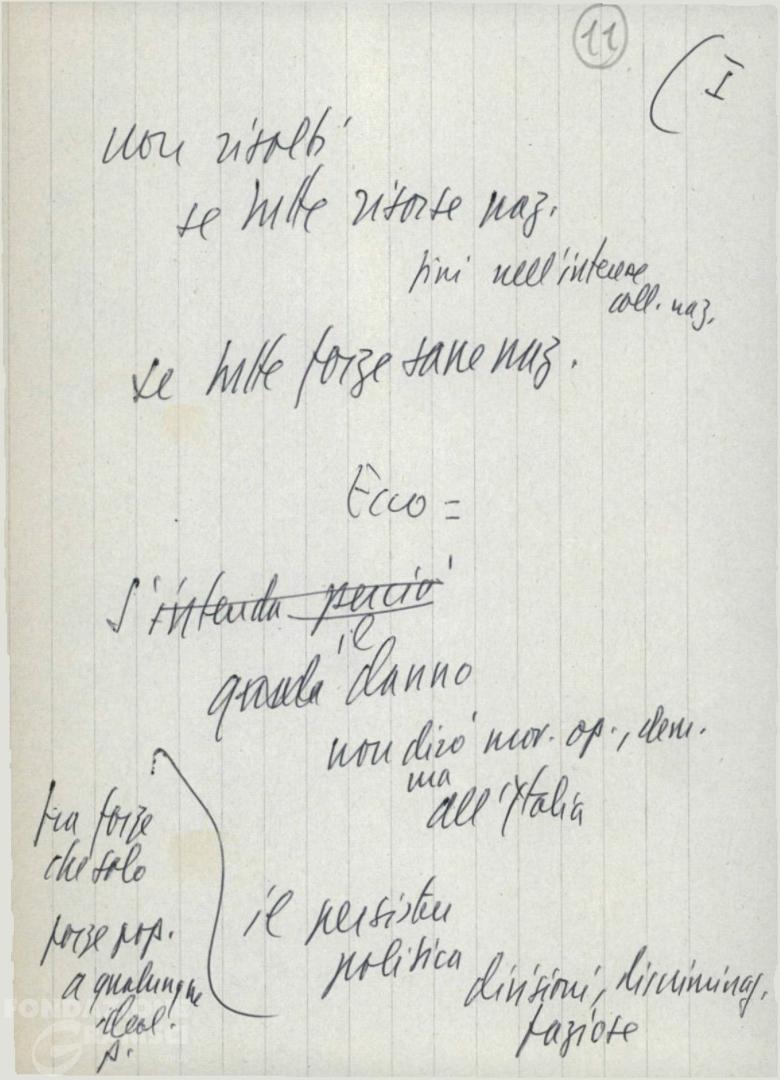 11
(I
non risolti
se tutte risorse naz.
fini nell'interesse
coll. naz.
se tutte forze sane naz.
Ecco =
S'intenda perciò
il
quale danno
non dirò mov. op., dem.
ma
all'Italia
fra forze
che solo
forze pop.
a qualunque
ideol.
p.
il persistere
politica
divisioni, discriminaz.
faziose
FONDAZIONE
GRAMSCI